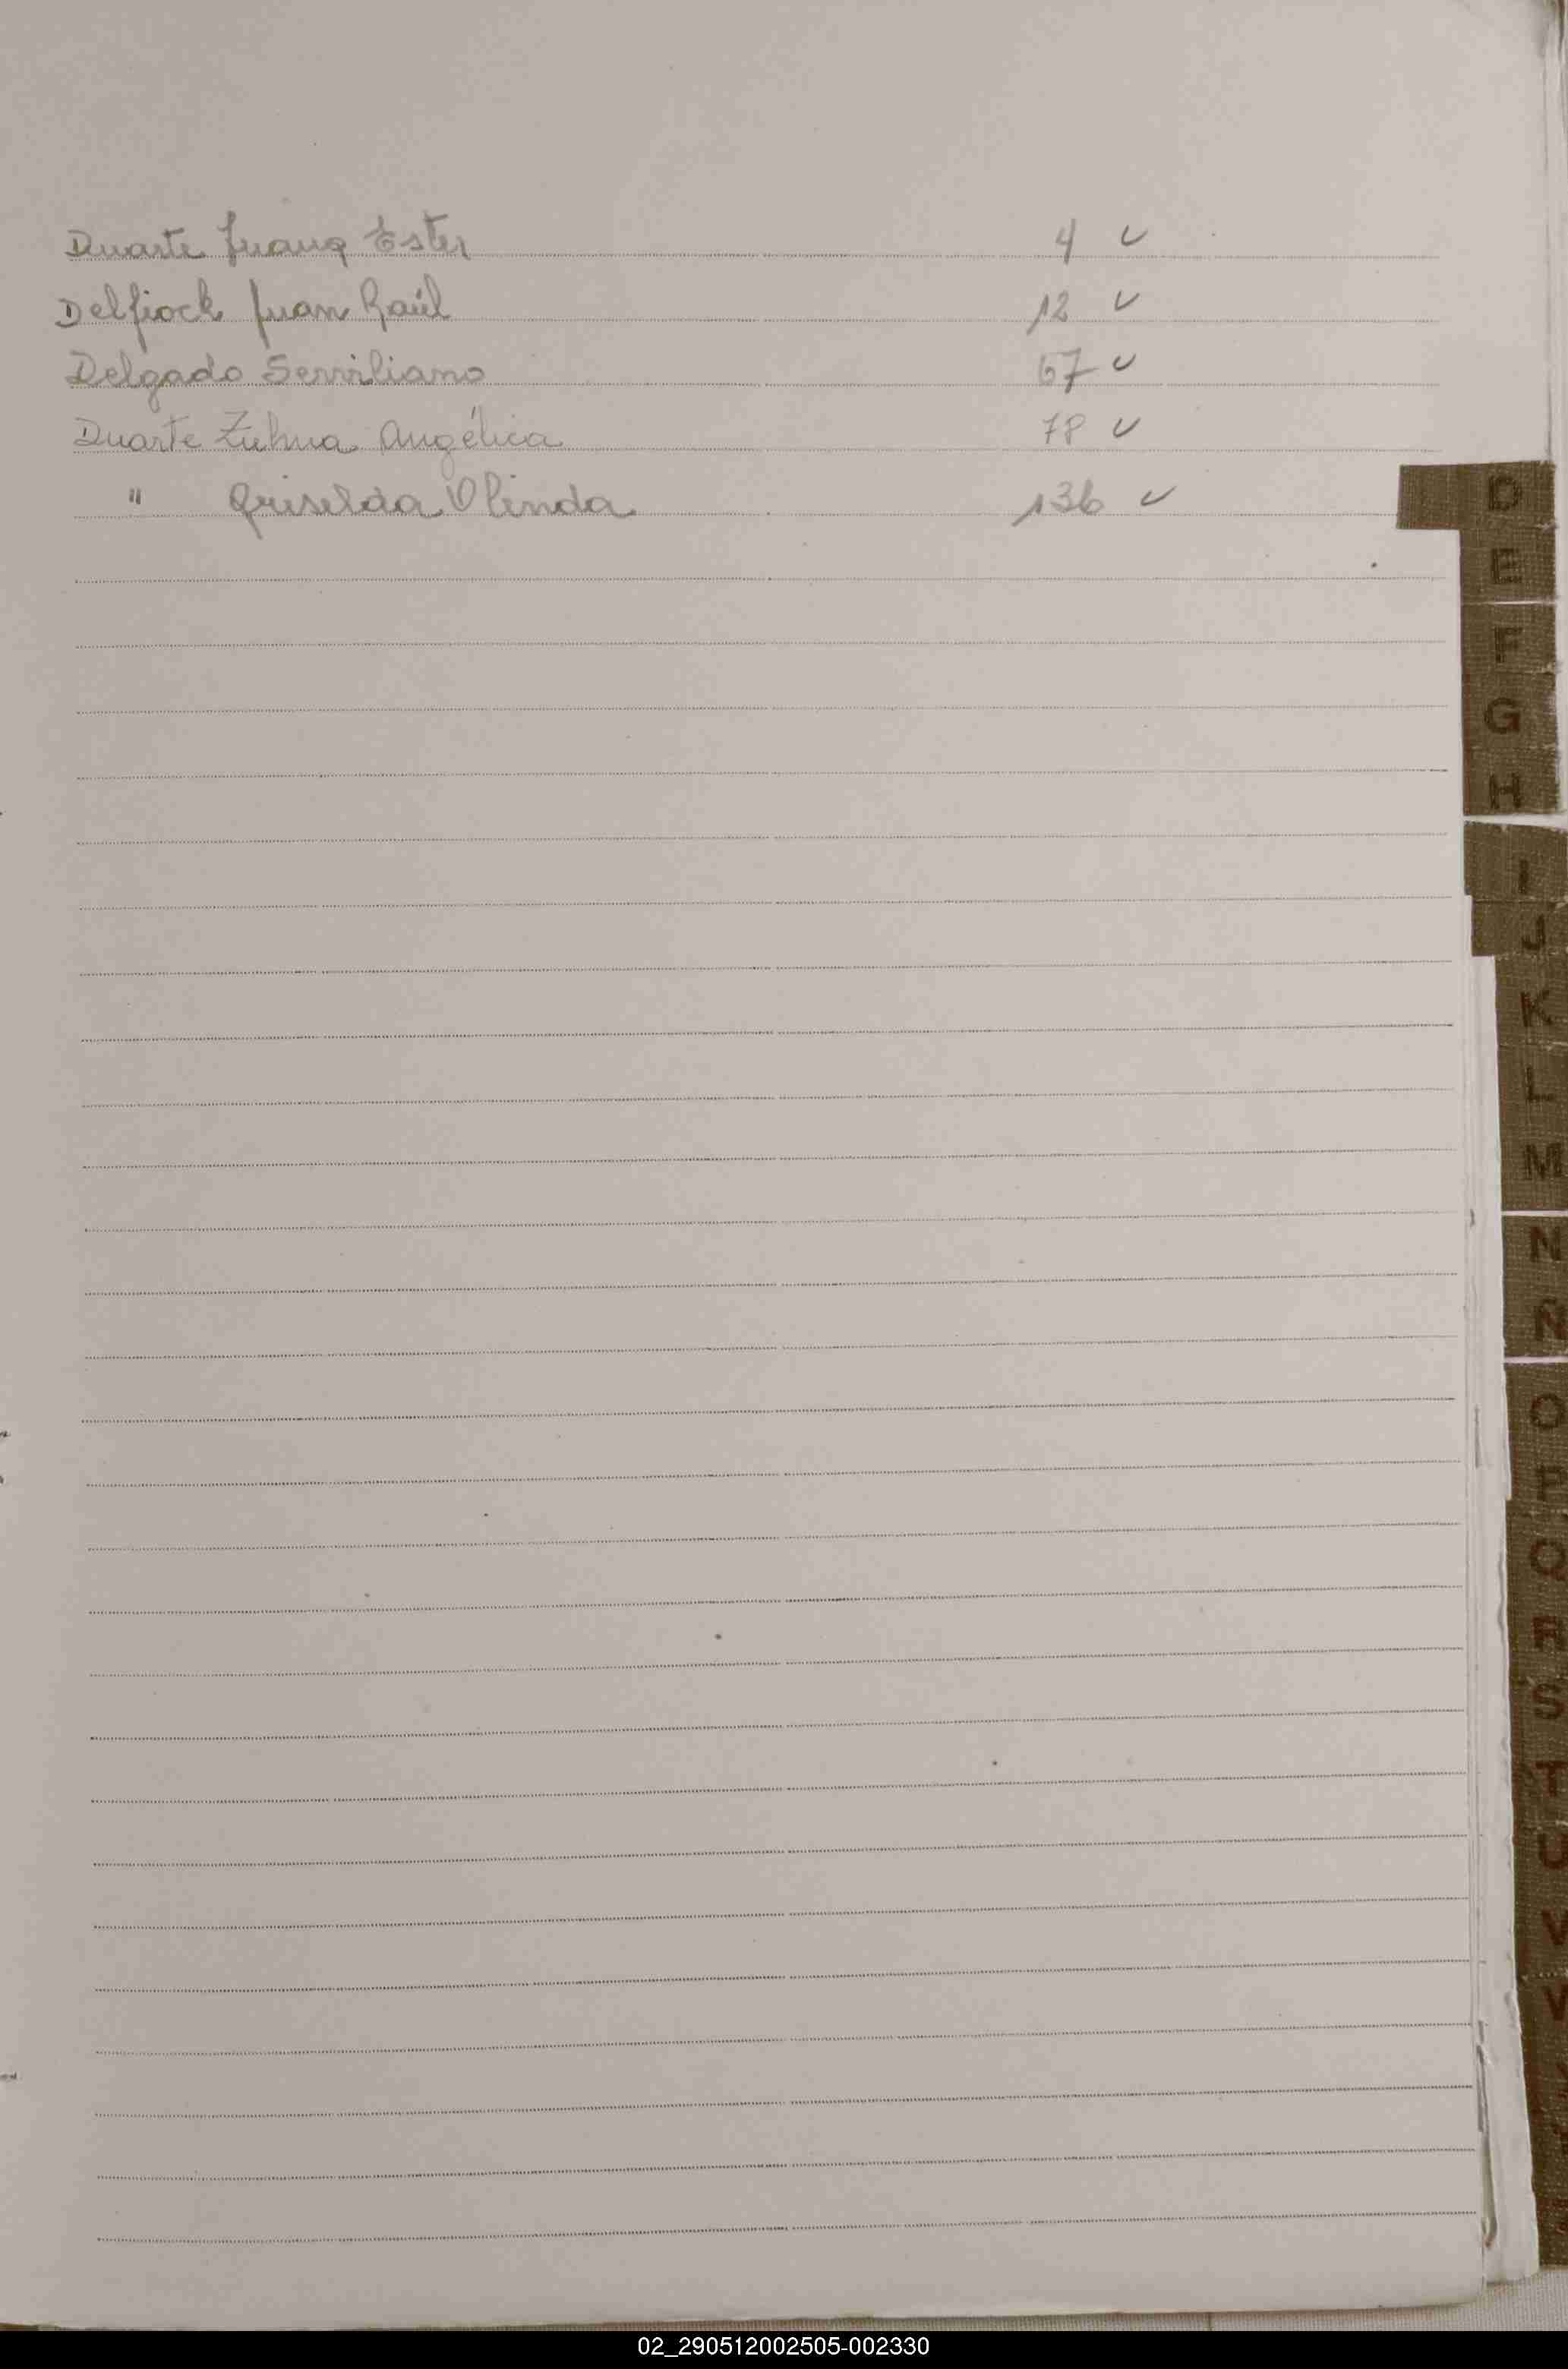 Duarte Juana Ester 4 ✓
Delfiock Juan Raúl 12 ✓
Delgado Serviliano 67 ✓
Duarte Zulma Angélica 78 ✓
" Griselda Olinda 136 ✓
D
E
F
G
H
I
J
K
L
M
N
Ñ
O
P
Q
R
S
T
U
V
02_290512002505-002330